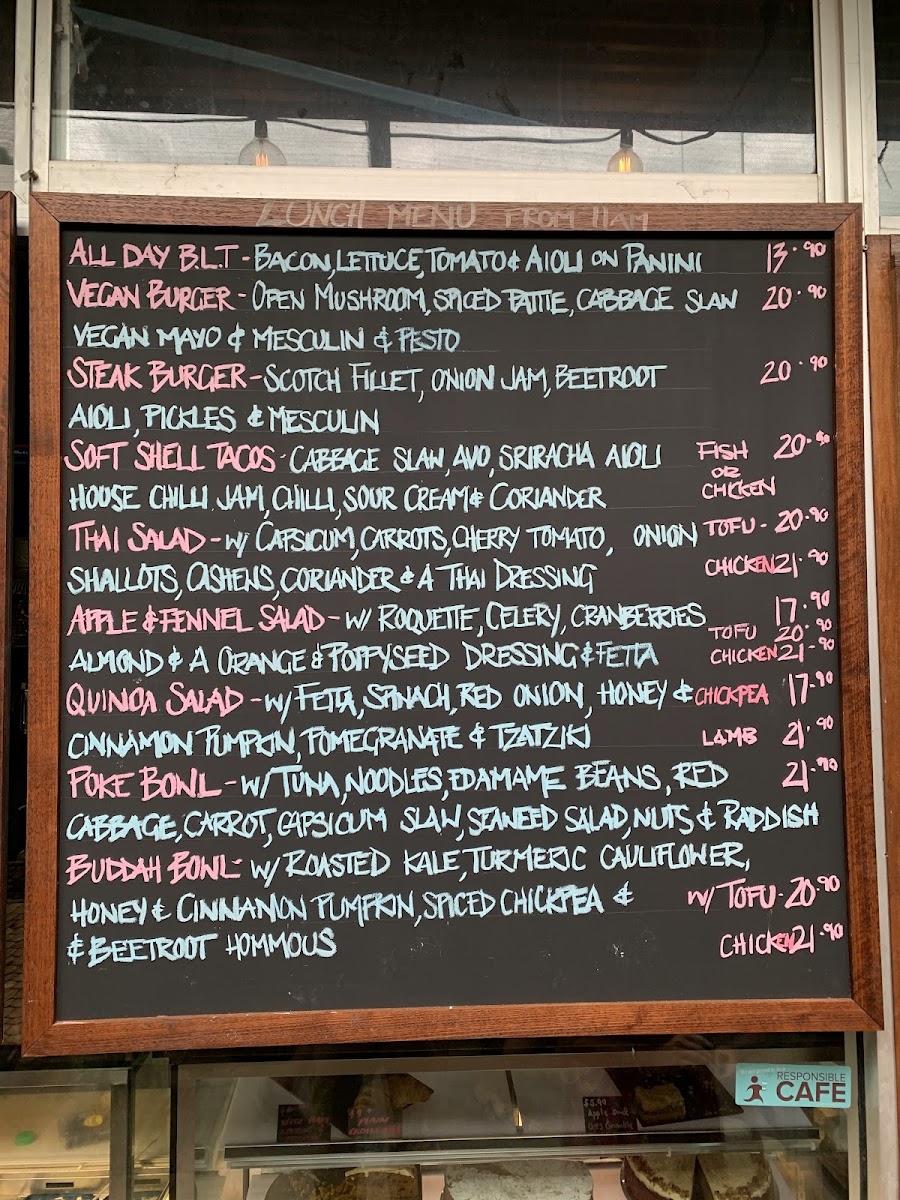 LUNCH MENU FROM 11AM
ALL DAY B.L.T - BACON, LETTUCE, TOMATO & AIOLI ON PANINI 13.90
VEGAN BURGER - OPEN MUSHROOM, SPICED PATTIE, CABBAGE SLAW 20.90
VEGAN MAYO & MESCULIN & PESTO
STEAK BURGER - SCOTCH FILLET, ONION JAM, BEETROOT 20.90
AIOLI, PICKLES & MESCULIN
SOFT SHELL TACOS - CABBAGE SLAW, AVO, SRIRACHA AIOLI FISH 20.90
OR
HOUSE CHILLI JAM, CHILLI, SOUR CREAM & CORIANDER CHICKEN
THAI SALAD - W/ CAPSICUM, CARROTS, CHERRY TOMATO, ONION TOFU - 20.90
SHALLOTS, CASHEWS, CORIANDER & A THAI DRESSING CHICKEN 21.90
APPLE & FENNEL SALAD - W/ ROQUETTE, CELERY, CRANBERRIES 17.90
TOFU 20.90
ALMOND & A ORANGE & POPPYSEED DRESSING & FETTA CHICKEN 21.90
QUINOA SALAD - W/ FETTA, SPINACH, RED ONION, HONEY & CHICKPEA 17.90
CINNAMON PUMPKIN, POMEGRANATE & TZATZIKI LAMB 21.90
POKE BOWL - W/ TUNA, NOODLES, EDAMAME BEANS, RED 21.90
CABBAGE, CARROT, CAPSICUM SLAW, SEAWEED SALAD, NUTS & RADDISH
BUDDAH BOWL - W/ ROASTED KALE, TURMERIC CAULIFLOWER,
HONEY & CINNAMON PUMPKIN, SPICED CHICKPEA & W/ TOFU - 20.90
& BEETROOT HOMMOUS CHICKEN 21.90
RESPONSIBLE
CAFE
$5.90
Apple